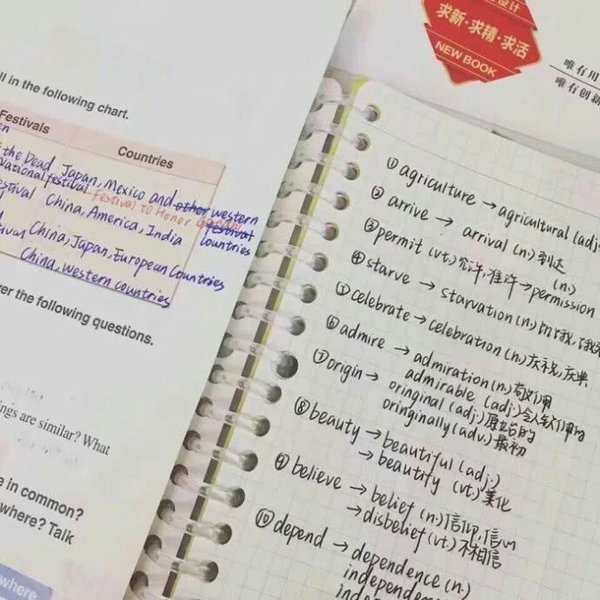 ll in the following chart.
Festivals
Countries
the Dead Japan, Mexico and other western
national festival Festival to Honor
festival
China, America, India
countries
China, Japan, European Countries
China, western countries
er the following questions.
ngs are similar? What
e in common?
where? Talk
where
设计
求新·求精·求活
NEW BOOK
唯有用
唯有创新
①agriculture → agricultural (adj.
②arrive → arrival (n.) 到达
③permit (vt.) 允许,准许 → permission
(n.)
④starve → starvation (n)
⑤celebrate → celebration (n.) 庆祝,庆典
⑥admire → admiration (n.) 敬佩
admirable (adj.) 令人钦佩的
⑦origin → oringinal (adj.) 原始的
oringinally (adv.) 最初
⑧beauty → beautiful (adj.)
→ beautify (vt.) 美化
⑨believe → belief (n.) 信仰,信心
→ disbelief (vt.) 不相信
⑩depend → dependence (n.)
independen